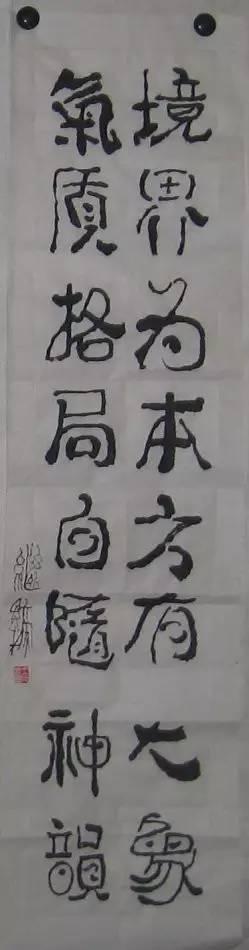 境界为本方有大象
氣质格局自隨神韻